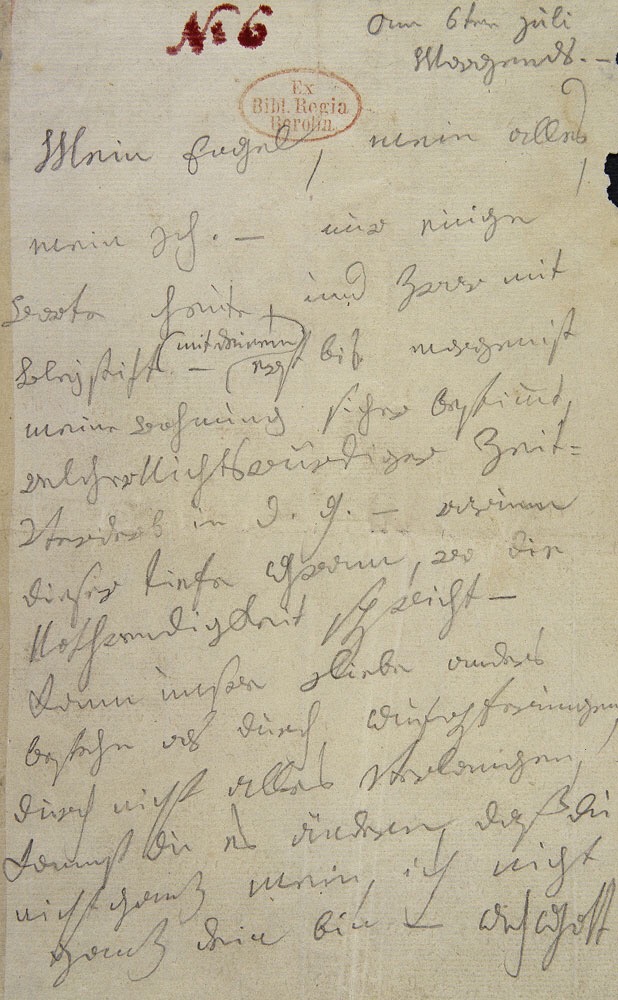 No 6
am 6ten juli
Morgends. —
Ex
Bibl. Regia
Berolin.
Mein Engel, mein alles
mein Ich. — nur einige
Worte heute, und zwar mit
Bleystift — (mit deinem)
erst bis morgen ist
meine Wohnung sicher bestimmt,
welcher Nichtswürdiger Zeit-
Verderb in d. g. — warum
dieser tiefe Gram, wo die
Nothwendigkeit spricht —
Kann unsre Liebe anders
bestehn als durch Aufopferungen,
durch nicht alles Verlangen,
kannst du es ändern, daß du
nicht ganz mein, ich nicht
ganz dein bin — Ach Gott